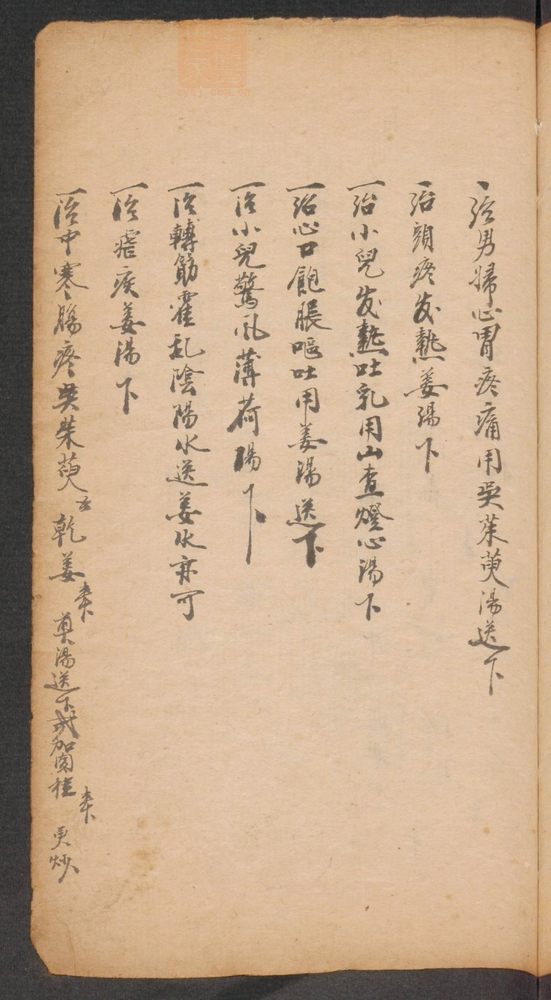 一治男婦心胃疼痛用吳茱萸湯送下
一治頭疼发熱姜湯下
一治小兒发熱吐乳用山查燈心湯下
一治心口飽脹嘔吐用姜湯送下
一治小兒驚风薄荷湯下
一治轉筋霍乱陰陽水送姜水亦可
一治瘧疾姜湯下
一治中寒腸疼吳朱萸 乾姜 湯送下或加肉桂 更炒